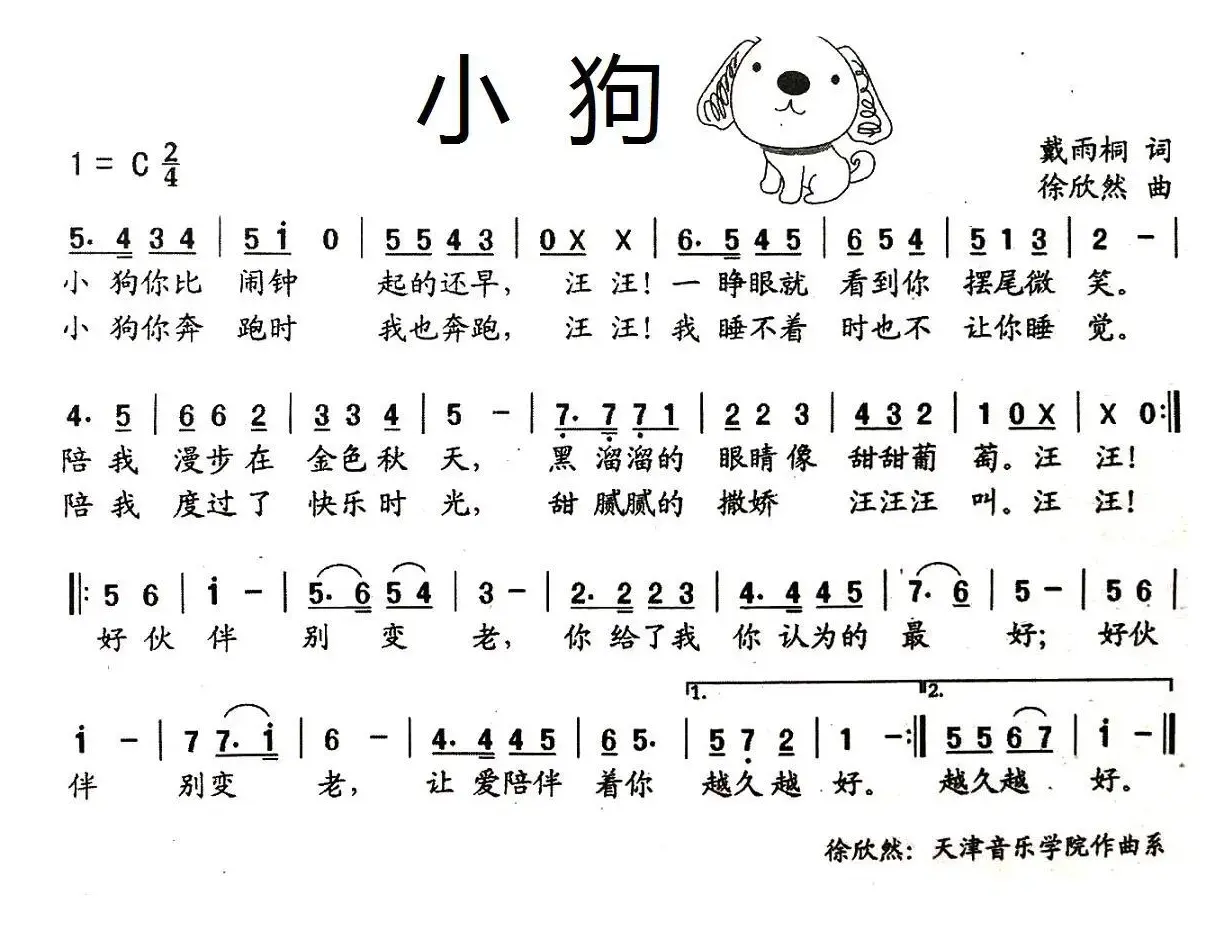 小 狗
1 = C 2/4
戴雨桐 词
徐欣然 曲
5. 4 3 4 | 5 i 0 | 5 5 4 3 | 0 X X | 6. 5 4 5 | 6 5 4 | 5 1 3 | 2 - |
小 狗你比 闹钟 起的还早, 汪 汪! 一 睁眼就 看到你 摆尾微 笑。
小 狗你奔 跑时 我也奔跑, 汪 汪! 我 睡不着 时也不 让你睡 觉。
4. 5 | 6 6 2 | 3 3 4 | 5 - | 7. 7 7 1 | 2 2 3 | 4 3 2 | 1 0 X | X 0 :||
陪 我 漫步在 金色秋 天, 黑 溜溜的 眼睛像 甜甜葡 萄。汪 汪!
陪 我 度过了 快乐时 光, 甜 腻腻的 撒娇 汪汪汪 叫。汪 汪!
||: 5 6 | i - | 5. 6 5 4 | 3 - | 2. 2 2 3 | 4. 4 4 5 | 7. 6 | 5 - | 5 6 |
好伙 伴 别 变 老, 你 给了我 你 认为的 最 好; 好伙
1. 2.
i - | 7 7. i | 6 - | 4. 4 4 5 | 6 5. | 5 7 2 | 1 - :|| 5 5 6 7 | i - ||
伴 别变 老, 让 爱陪伴 着你 越久越 好。 越久越 好。
徐欣然: 天津音乐学院作曲系